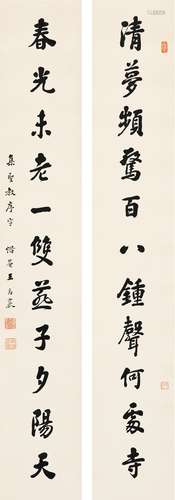 清夢頻驚百八鐘聲何處寺
春光未老一雙燕子夕陽天
集聖教序字